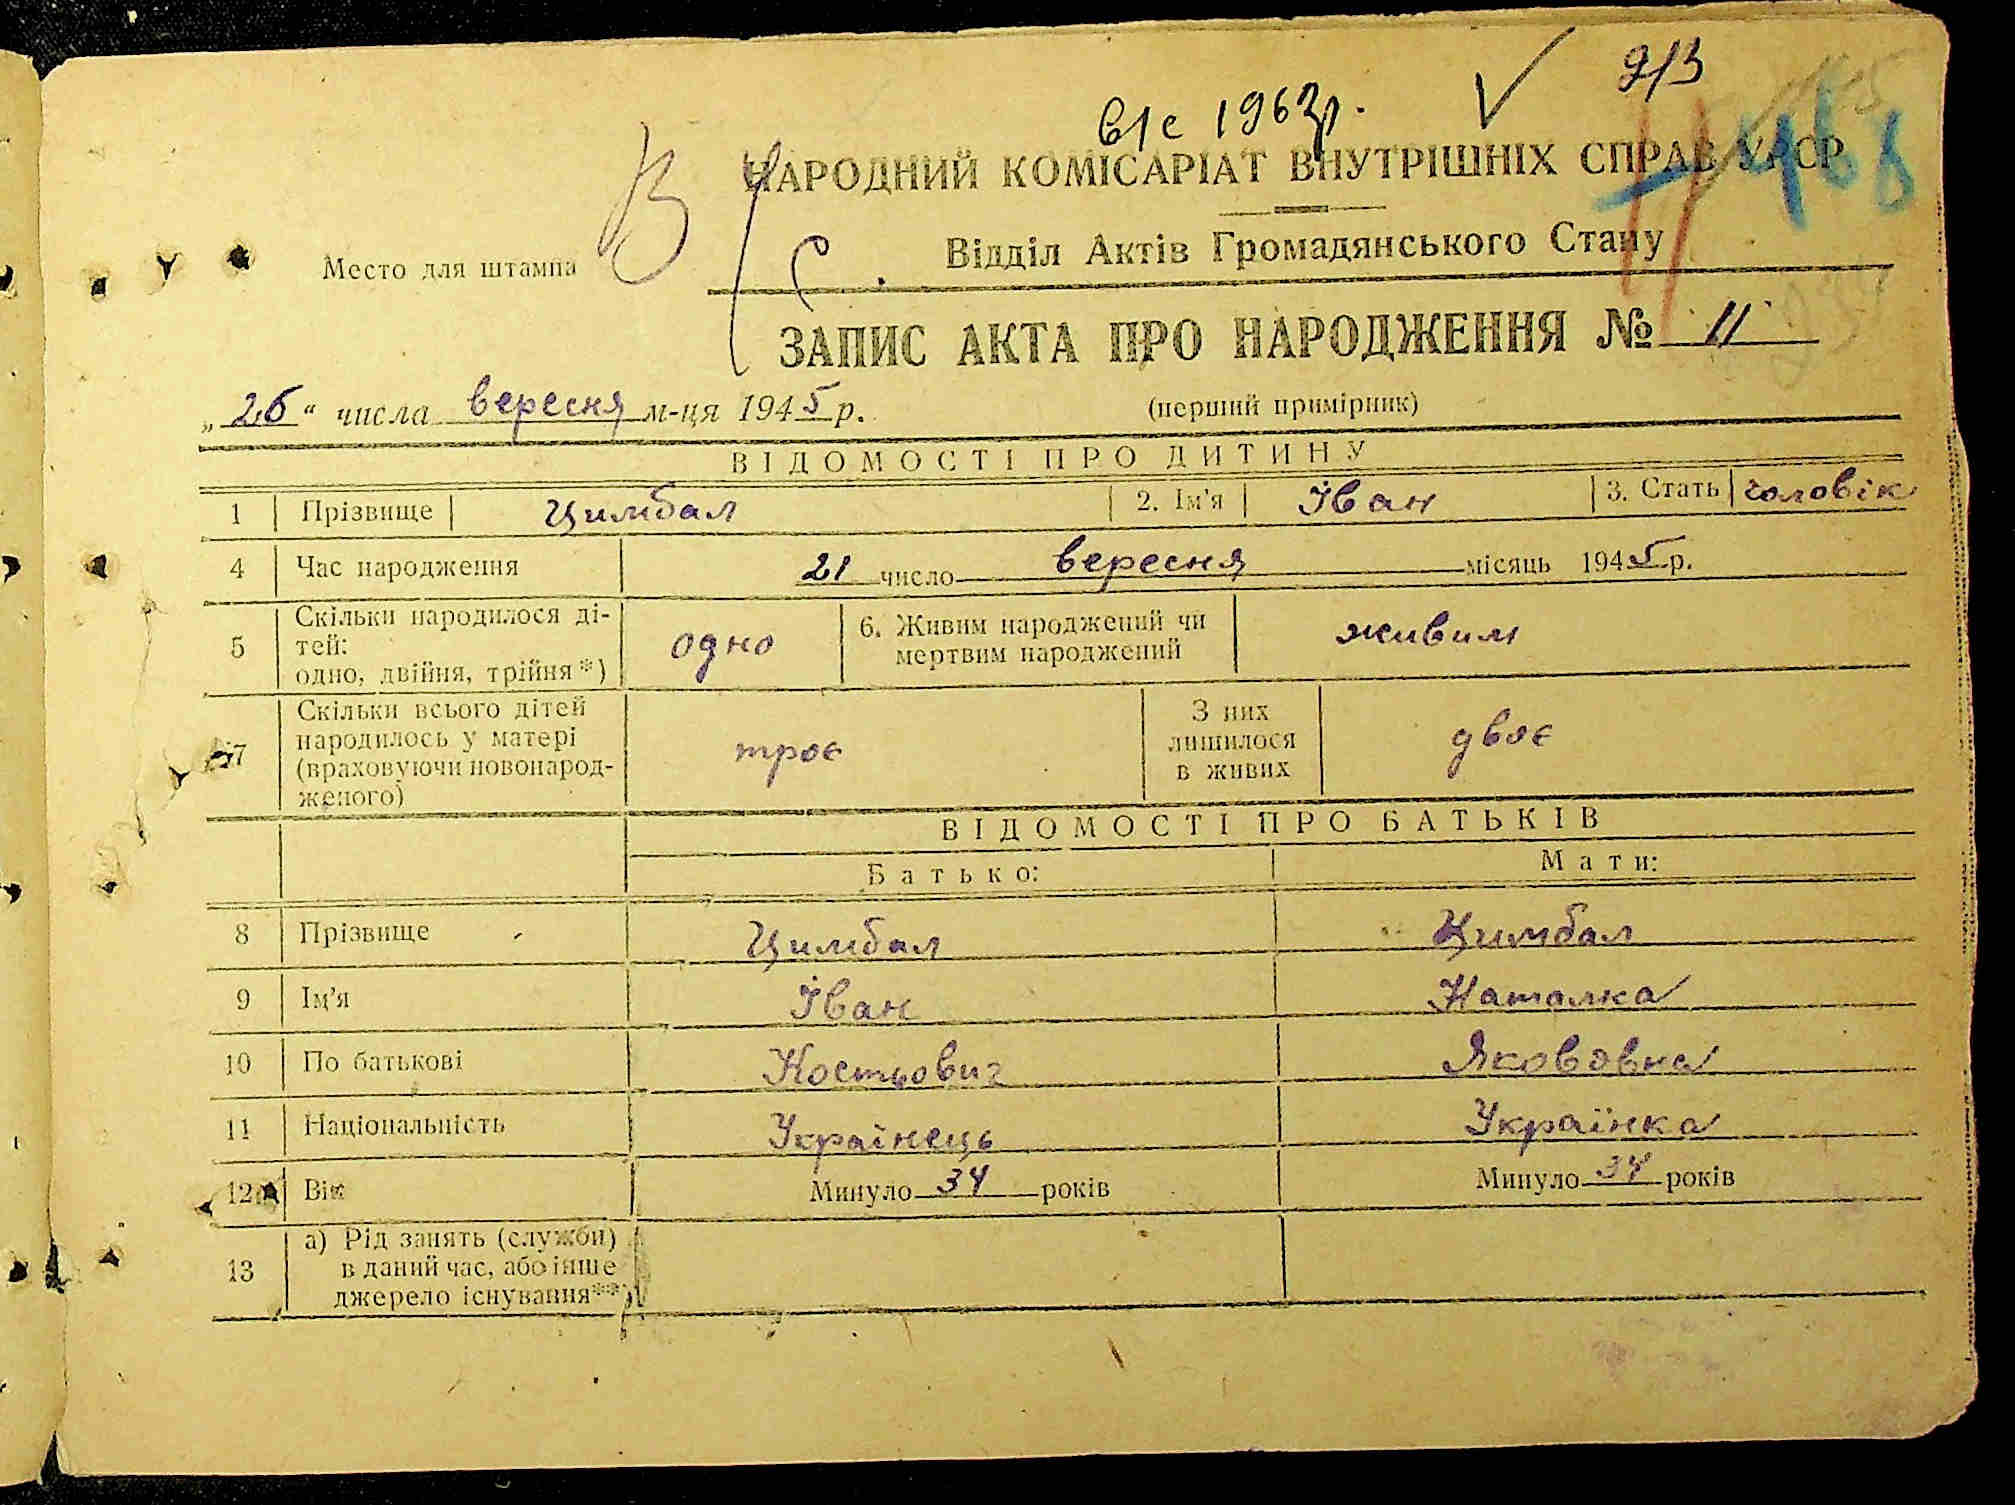 в/с 1963р.
НАРОДНИЙ КОМІСАРІАТ ВНУТРІШНІХ СПРАВ УРСР
Место для штампа
В/С.
Відділ Актів Громадянського Стану
ЗАПИС АКТА ПРО НАРОДЖЕННЯ № 11
„26“ числа вересня м-ця 1945 р.
(перший примірник)
ВІДОМОСТІ ПРО ДИТИНУ
1 Прізвище Цимбал 2. Ім'я Іван 3. Стать чоловік
4 Час народження 21 число вересня місяць 1945 р.
5 Скільки народилося ді-
тей:
одно, двійня, трійня*)
одно
6. Живим народжений чи
мертвим народжений
живим
7 Скільки всього дітей
народилось у матері
(враховуючи новонарод-
женого)
троє
З них
лишилося
в живих
двоє
ВІДОМОСТІ ПРО БАТЬКІВ
Батько: Мати:
8 Прізвище Цимбал Цимбал
9 Ім'я Іван Наталка
10 По батькові Костьович Якововна
11 Національність Українець Українка
12 Вік Минуло 34 років Минуло 34 років
13 а) Рід занять (служби)
в даний час, або інше
джерело існування**)